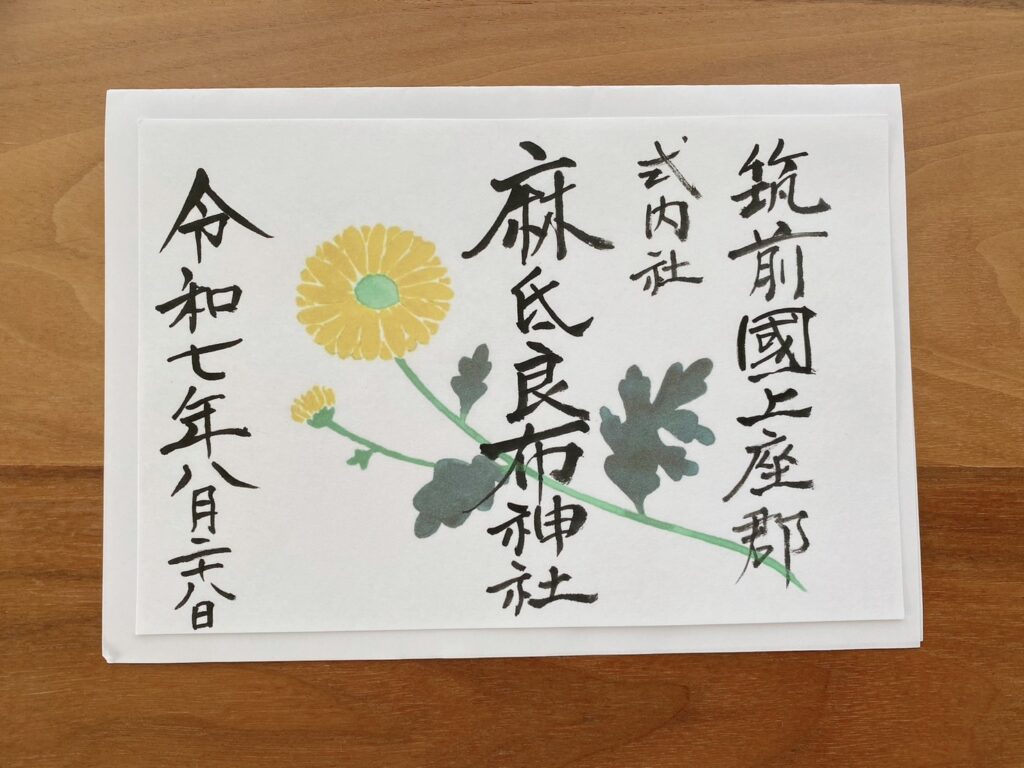 筑前國上座郡
式内社
麻氐良布神社
令和七年八月二十八日